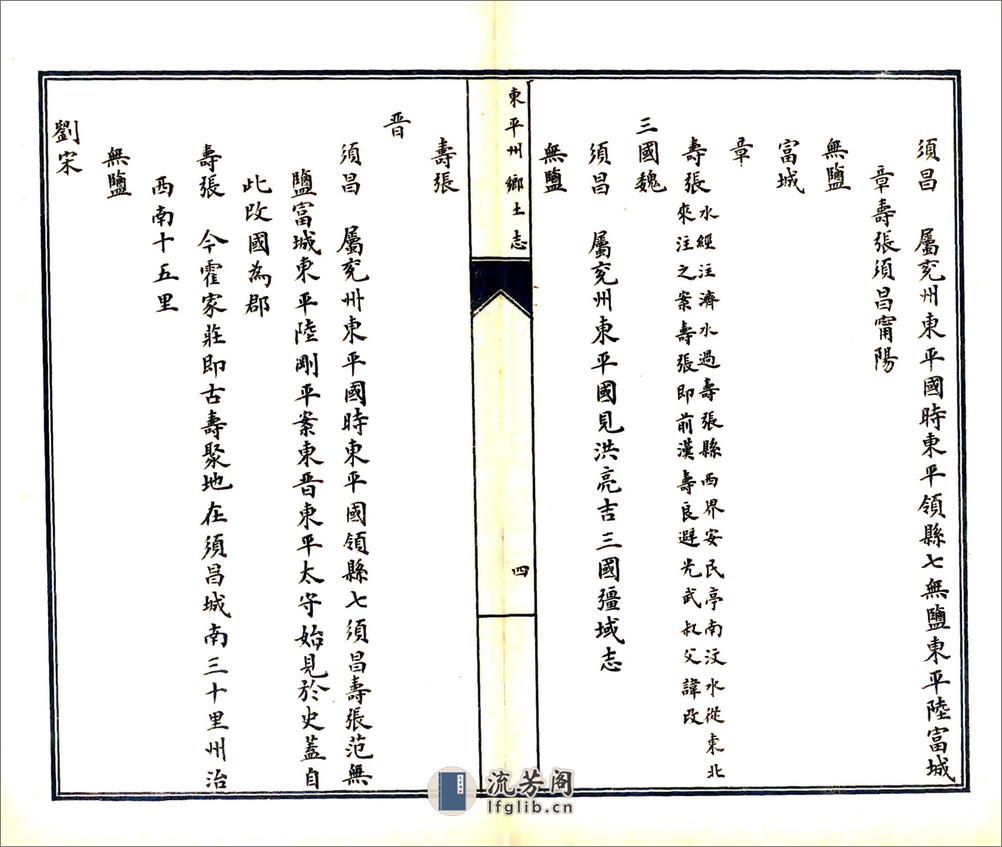 須昌　屬兖州東平國時東平領縣七無鹽東平陸富城
章壽張須昌甯陽
無鹽
富城
章
壽張水經注濟水過壽張縣西界安民亭南汶水從東北
來注之案壽張即前漢壽良避光武叔父諱改
三國魏
須昌　屬兖州東平國見洪亮吉三國彊域志
無鹽
東平州鄉土志
四
壽張
晋
須昌　屬兖州東平國時東平國領縣七須昌壽張范無
鹽富城東平陸剛平案東晋東平太守始見於史蓋自
此改國為郡
壽張　今霍家莊即古壽聚地在須昌城南三十里州治
西南十五里
無鹽
劉宋
流芳阁
lfglib.cn